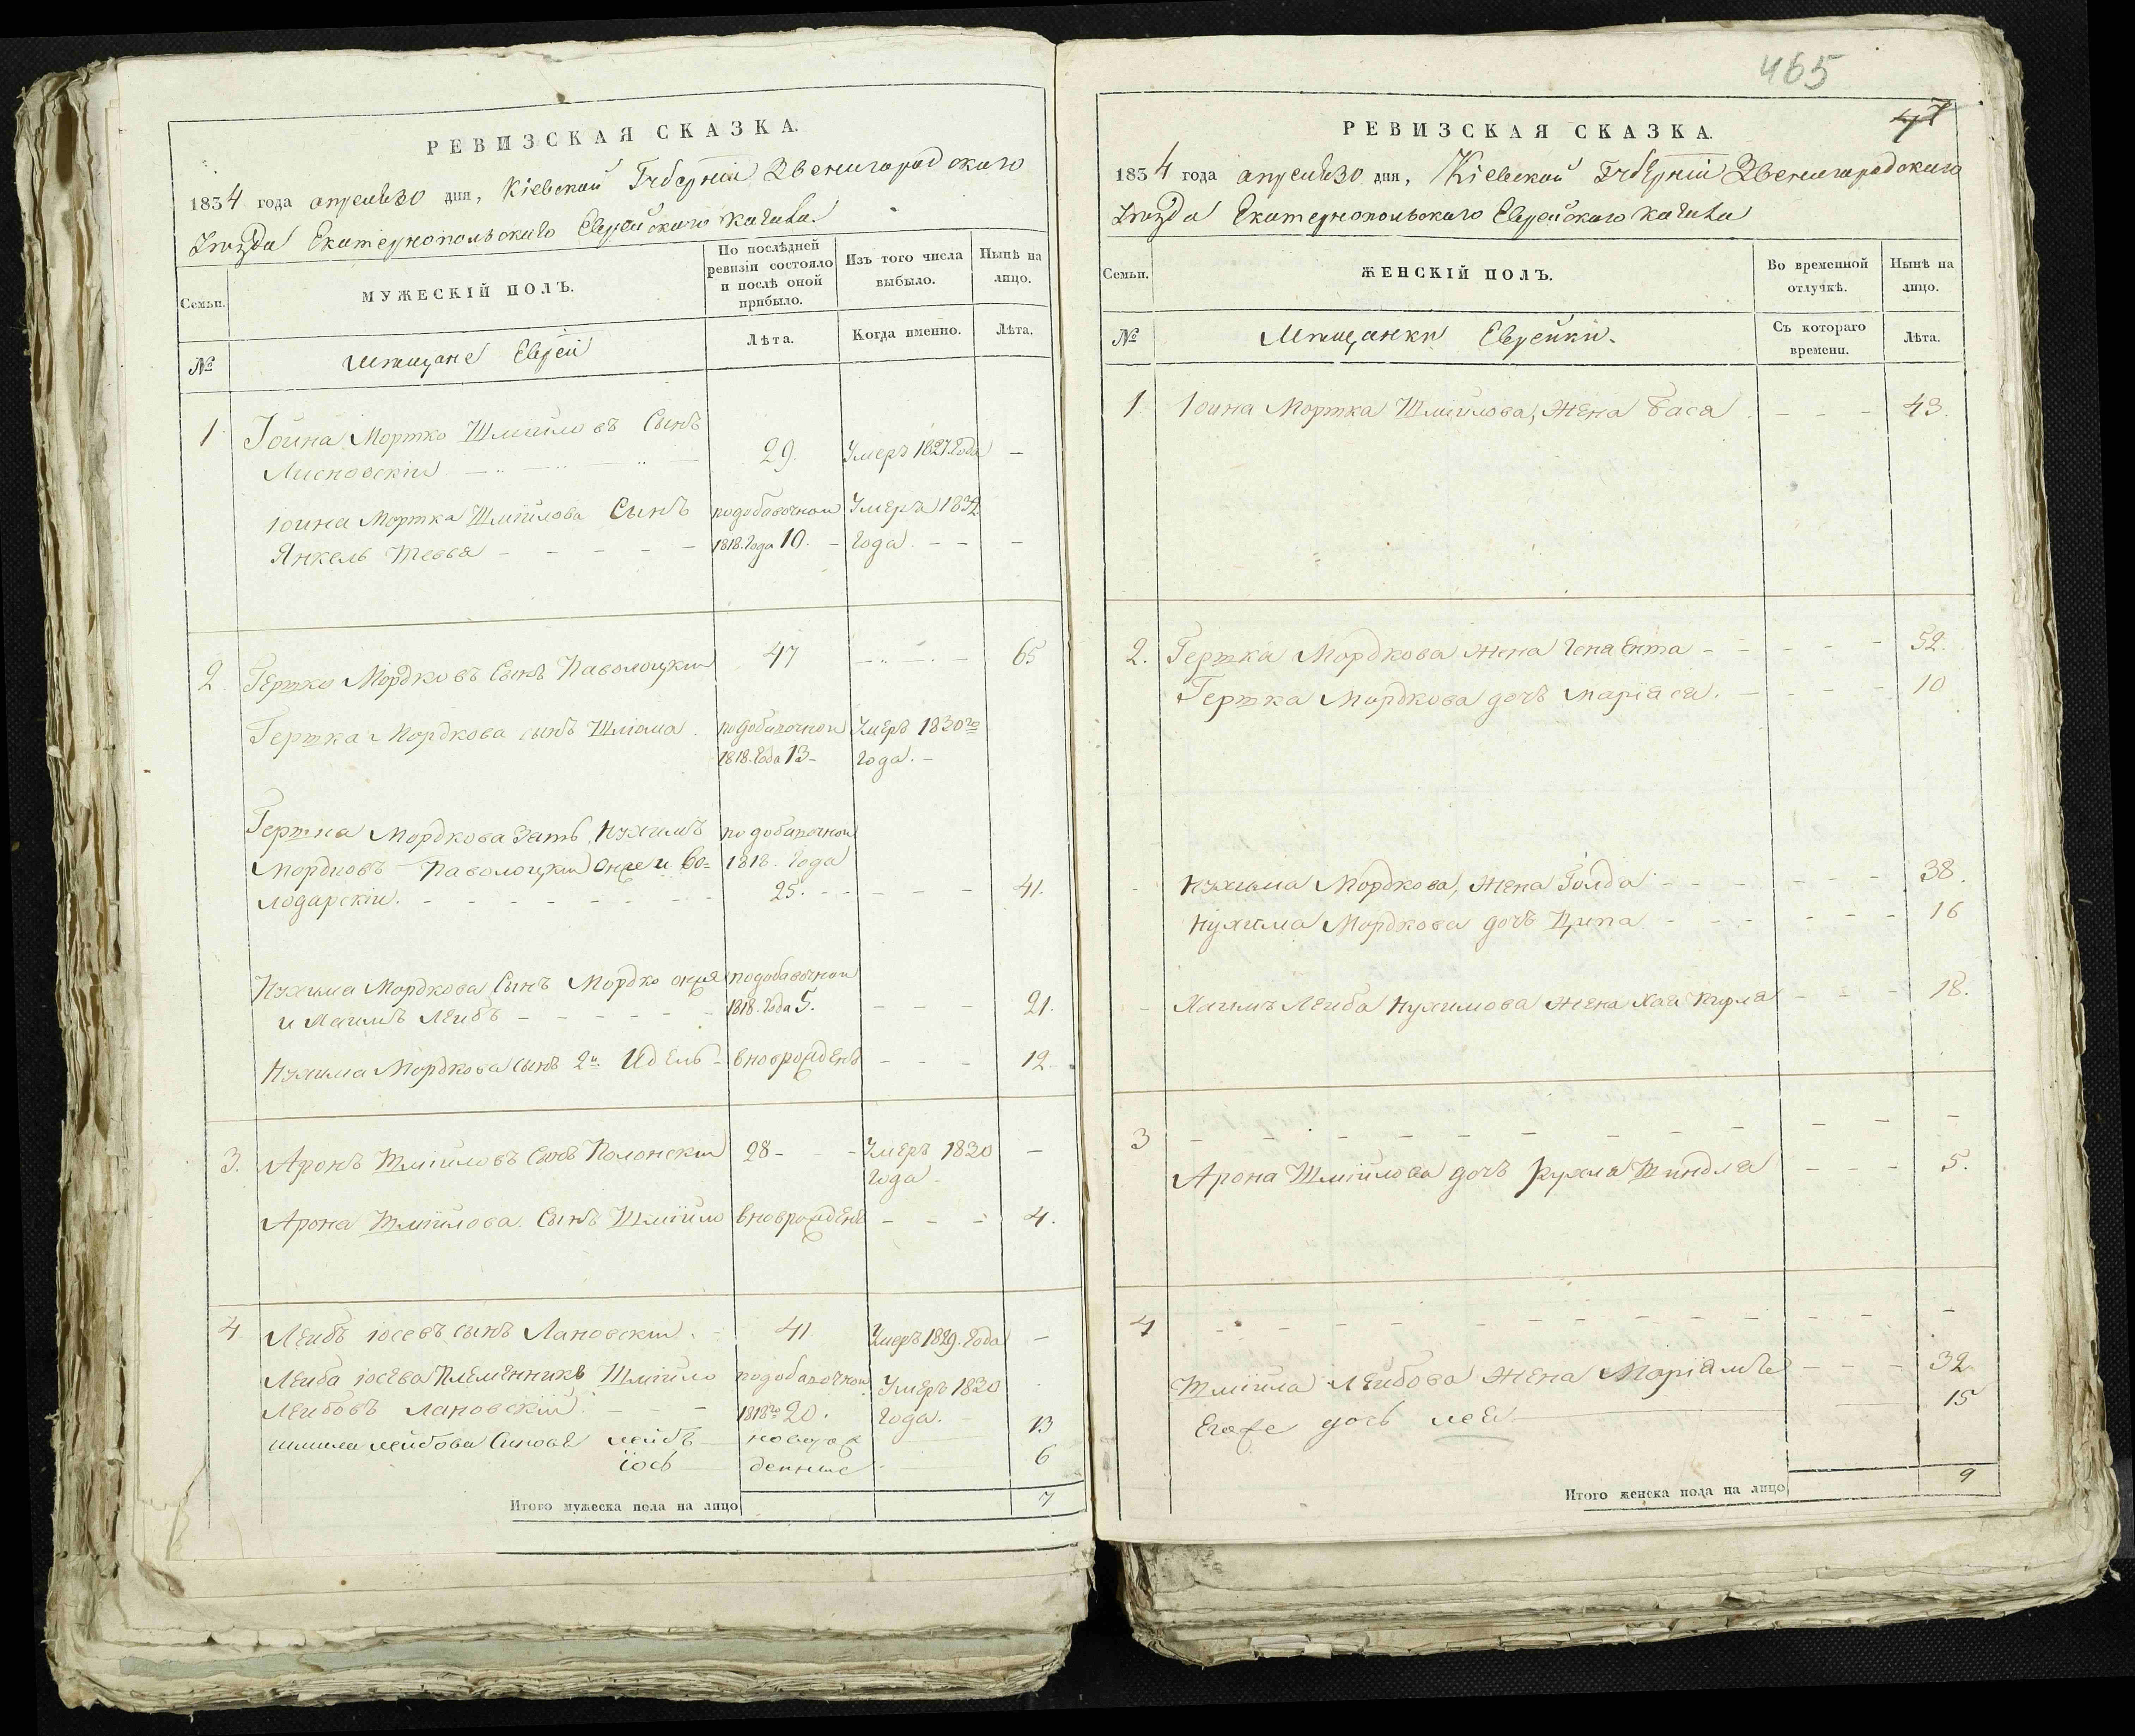 РЕВИЗСКАЯ СКАЗКА.
1834 года апреля 30 дня, Кіевской Губерніи Звенигородского
Уѣзда Екатеринопольского Еврейского Кагала
Семьи.
МУЖЕСКІЙ ПОЛЪ.
По послѣдней
ревизіи состояло
и послѣ оной
прибыло.
Изъ того числа
выбыло.
Нынѣ на
лицо.
№
Мѣщане Евреи
Лѣта.
Когда именно.
Лѣта.
1 Іойна Мортко Шмуйловъ Сынъ
Лисновскій 29. Умеръ 1827. Года —
Іойна Мортка Шмуйлова Сынъ по добавочной Умеръ 1834
Янкель Тевья 1818. Года 10. Года —
2 Гершко Мордковъ Сынъ Паволоцкій 47 65
Гершка Мордкова сынъ Шлиома по добавочной Умеръ 1830го
1818. Года 13 Года.
Гершка Мордкова Зять, Нухимъ по добавочной
Мордковъ Паволоцкій Онже и Во- 1818. Года
лодарскій. 25. 41.
Нухима Мордкова Сынъ Мордко онже по добавочной
и Хаимъ Лейбъ 1818. Года 5. 21.
Нухима Мордкова сынъ 2й Идель вноврожденъ 12
3. Аронъ Шмуйловъ Сынъ Полонскій 28 Умеръ 1830 —
Года
Арона Шмуйлова Сынъ Шмуйло вноврожденъ 4.
4 Лейбъ Іосевъ сынъ Лановскій. 41 Умеръ 1829. Года —
Лейба Іосева Племенникъ Шмуйло по добавочной Умеръ 1830
Лейбовъ Лановскій. 1818го 20. Года.
Шмуйла Лейбова Сыновья Лейбъ новорож 13
Іось денные 6
Итого мужеска пола на лицо 7
465
47
РЕВИЗСКАЯ СКАЗКА.
1834 года апреля 30 дня, Кіевской Губерніи Звенигородского
Уѣзда Екатеринопольского Еврейского Кагала
Семьи.
ЖЕНСКІЙ ПОЛЪ.
Во временной
отлучкѣ.
Нынѣ на
лицо.
№
Мѣщанки Еврейки.
Съ котораго
времени.
Лѣта.
1. Іойна Мортка Шмуйлова, Жена Бася 43.
2. Гершка Мордкова Жена Ента 52.
Гершка Мордкова дочь Маріася. 10
Нухима Мордкова, Жена Голда 38.
Нухима Мордкова дочь Ципа 16
Хаимъ Лейба Нухимова Жена Хая 18.
3 —
Арона Шмуйлова дочь Рухля Шиндля 5.
4 —
Шмуйла Лейбова Жена Маріамъ 32
Егоже дочь Лея 15
Итого женска пола на лицо 9